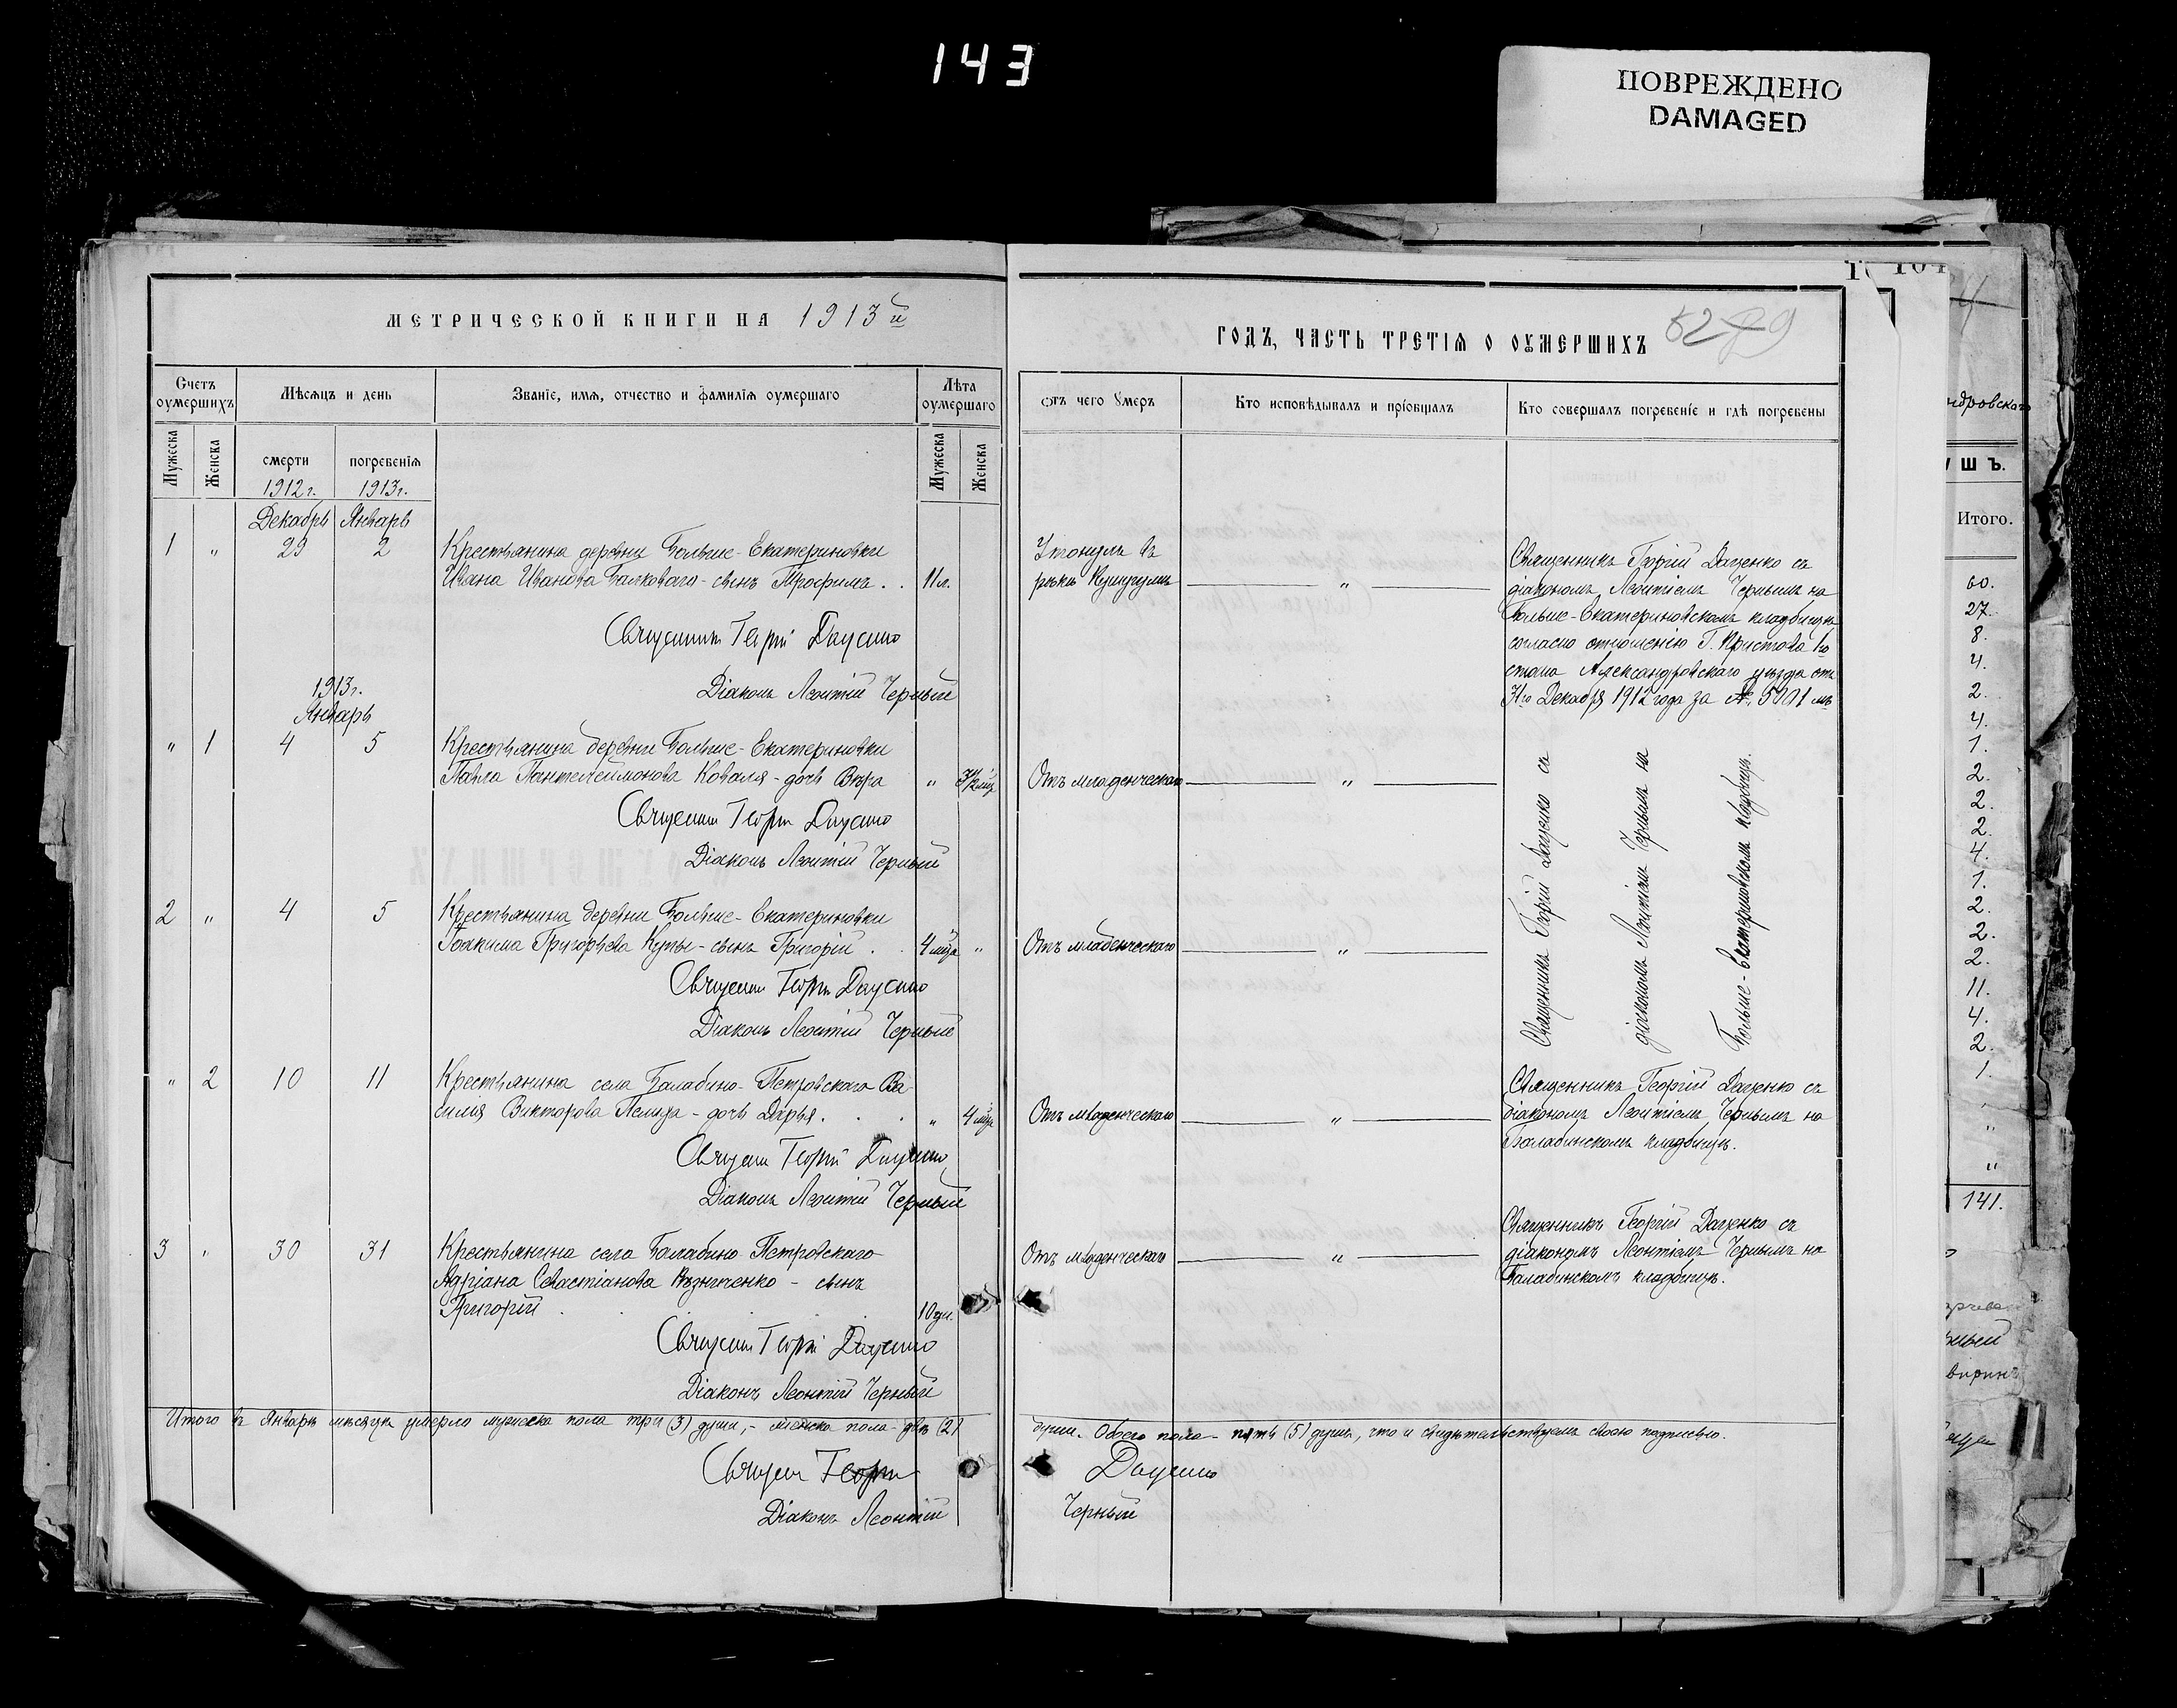 143
ПОВРЕЖДЕНО
DAMAGED
МЕТРИЧЕСКОЙ КНИГИ НА 1913й
Счетъ оумершихъ
Мѣсяцъ и день
Званіе, имя, отчество и фамилія оумершаго
Лѣта оумершаго
Мужеска
Женска
смерти
погребенія
Мужеска
Женска
1912 г.
1913 г.
Декабрь
Январь
1 „ 29 2 Крестьянина деревни Больше-Екатериновки
Ивана Иванова Балковаго - сынъ Трофимъ . . 11 л.
Священникъ Георгій Даценко
Діаконъ Леонтій Черный
1913 г.
Январь
„ 1 4 5 Крестьянина деревни Больше-Екатериновки
Павла Пантелеймонова Коваля - дочь Вѣра „ 3½ мѣс
Священникъ Георгій Даценко
Діаконъ Леонтій Черный
2 „ 4 5 Крестьянина деревни Больше-Екатериновки
Іоакима Григорьева - сынъ Григорій . 4 мѣся „
Священникъ Георгій Даценко
Діаконъ Леонтій Черный
„ 2 10 11 Крестьянина села Балабино-Петровскаго Ва-
силія Викторова - дочь Дарья . . . „ 4 мѣся
Священникъ Георгій Даценко
Діаконъ Леонтій Черный
3 „ 30 31 Крестьянина села Балабино Петровскаго
Адріана Севастіанова - сынъ
Григорій . . . . 10 дн.
Священникъ Георгій Даценко
Діаконъ Леонтій Черный
Итого въ Январѣ мѣсяцѣ умерло мужеска пола три (3) души, - женска пола - двѣ (2)
Священникъ Георгій
Діаконъ Леонтій
ГОДЪ, ЧАСТЬ ТРЕТІЯ О ОУМЕРШИХЪ
отъ чего умеръ
Кто исповѣдывалъ и пріобщалъ
Кто совершалъ погребеніе и гдѣ погребены
Утонулъ въ
рѣкѣ Кушугумъ
„
Священникъ Георгій Даценко съ
діакономъ Леонтіемъ Чернымъ на
Больше-Екатериновскомъ кладбищѣ
согласно отношенію Г. Пристава 1го
стана Александровскаго уѣзда отъ
31го Декабря 1912 года за №
Отъ младенческаго „
Отъ младенческаго „
Священникъ Георгій Даценко съ
діакономъ Леонтіемъ Чернымъ на
Больше-Екатериновскомъ кладбищѣ.
Отъ младенческаго „
Священникъ Георгій Даценко съ
діакономъ Леонтіемъ Чернымъ на
Балабинскомъ кладбищѣ.
Отъ младенческаго „
Священникъ Георгій Даценко съ
діакономъ Леонтіемъ Чернымъ на
Балабинскомъ кладбищѣ.
души. Обоего пола - пять (5) душъ, что и свидѣтельствуемъ своею подписью.
Даценко
Черный
ндровскаго
УШЪ.
Итого.
60.
27.
8.
4.
2.
4.
1.
2.
2.
2.
4.
1.
2.
2.
2.
11.
4.
2.
1.
„
„
„
141.